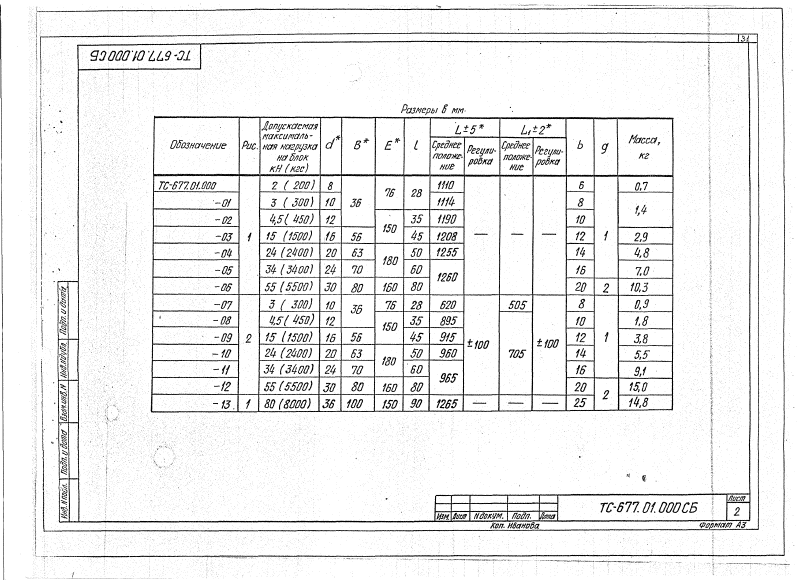 31
ТС-677.01.000СБ
Размеры в мм.
Обозначение Рис. Допускаемая максималь-ная нагрузка на блок кН (кгс) d* B* E* l L±5* L₁±2* b g Масса, кг
Среднее положе-ние Регули-ровка Среднее положе-ние Регули-ровка
ТС-677.01.000 1 2 (200) 8 36 76 28 1110 — — — 6 1 0,7
-01 3 (300) 10 1114 8 1,4
-02 4,5 (450) 12 150 35 1190 10
-03 15 (1500) 16 56 45 1208 12 2,9
-04 24 (2400) 20 63 180 50 1255 14 4,8
-05 34 (3400) 24 70 60 1260 16 7,0
-06 55 (5500) 30 80 160 80 20 2 10,3
-07 2 3 (300) 10 36 76 28 620 ±100 505 ±100 8 1 0,9
-08 4,5 (450) 12 150 35 895 705 10 1,8
-09 15 (1500) 16 56 45 915 12 3,8
-10 24 (2400) 20 63 180 50 960 14 5,5
-11 34 (3400) 24 70 60 965 16 9,1
-12 55 (5500) 30 80 160 80 20 2 15,0
-13 1 80 (8000) 36 100 150 90 1265 — — — 25 14,8
Инв.№подл. Подп. и дата Взам.инв.№ Инв.№дубл. Подп. и дата
Изм. Лист №докум. Подп. Дата
ТС-677.01.000СБ
Лист
2
Коп. Иванова
Формат А3